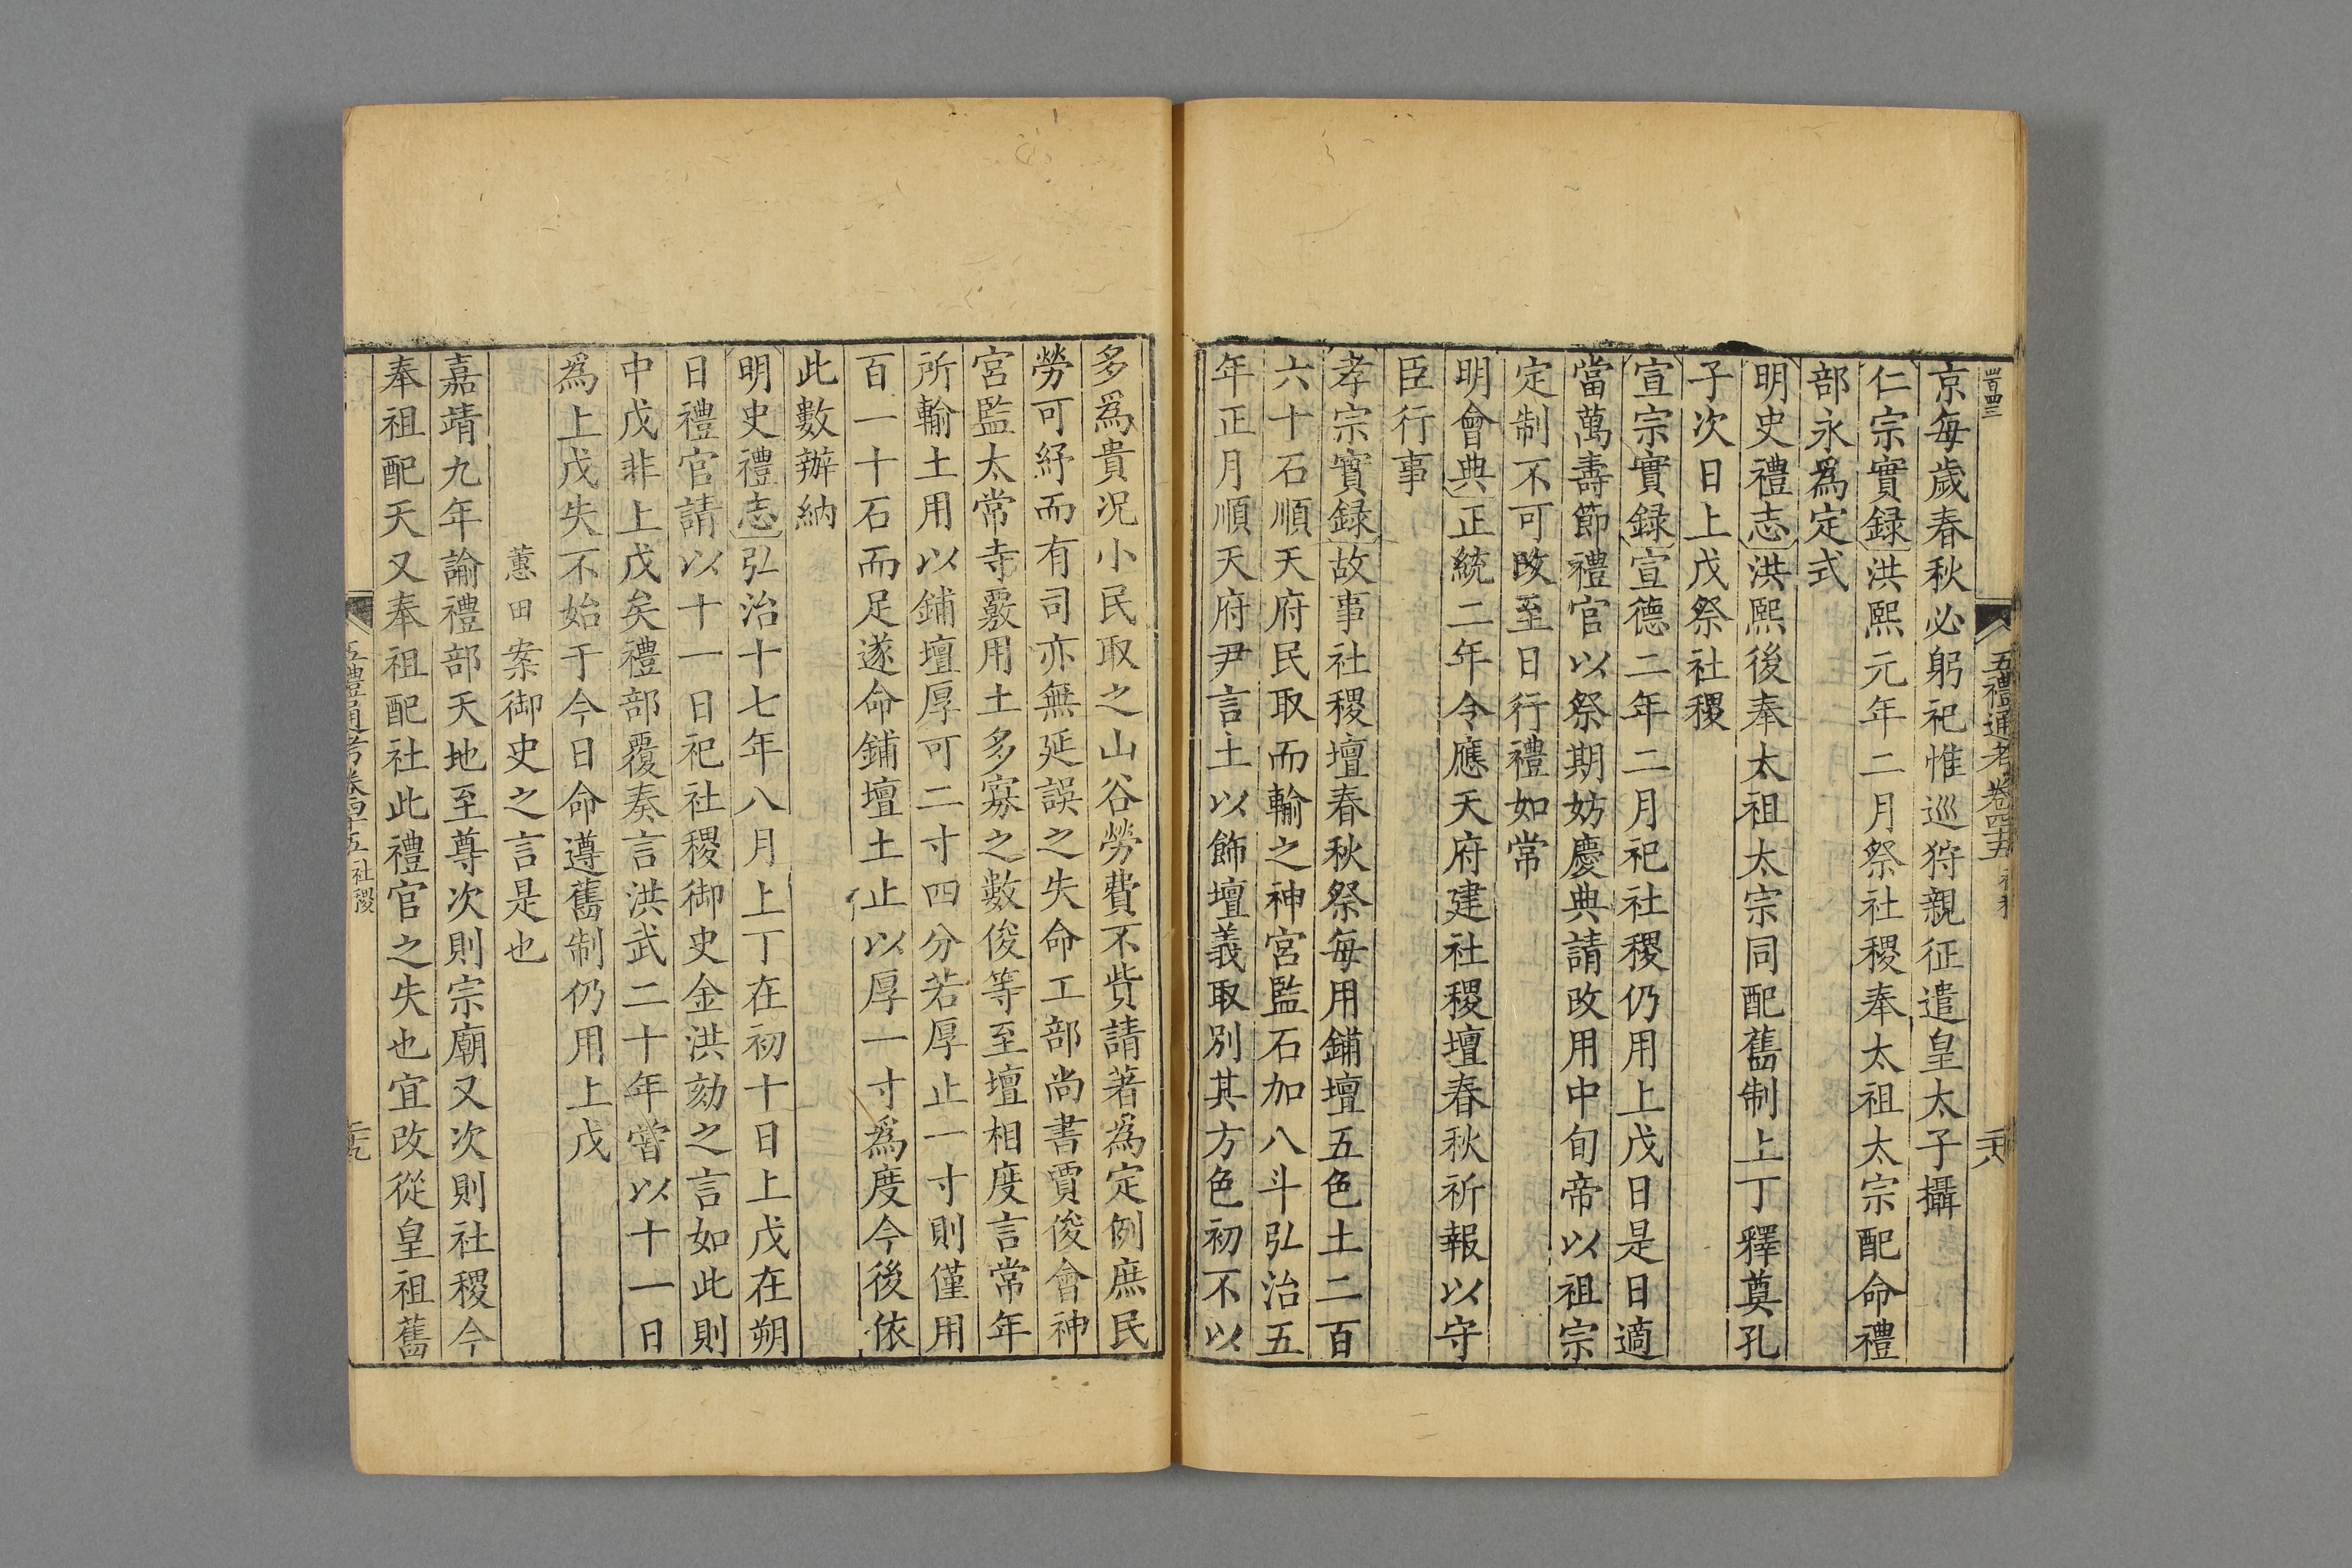 五禮通考卷四十五
京每歲春秋必躬祀惟巡狩親征遣皇太子攝
仁宗實録洪熙元年二月祭社稷奉太祖太宗配命禮
部永爲定式
明史禮志洪熙後奉太祖太宗同配舊制上丁釋奠孔
子次日上戊祭社稷
宣宗實録宣德二年二月祀社稷仍用上戊日是日適
當萬壽節禮官以祭期妨慶典請改用中旬帝以祖宗
定制不可改至日行禮如常
明會典正統二年令應天府建社稷壇春秋祈報以守
臣行事
孝宗實録故事社稷壇春秋祭每用鋪壇五色土二百
六十石順天府民取而輸之神宮監石加八斗弘治五
年正月順天府尹言土以飾壇義取別其方色初不以
多爲貴况小民取之山谷勞費不貲請著爲定例庶民
勞可紓而有司亦無延誤之失命工部尚書賈俊會神
宮監太常寺覈用土多寡之數俊等至壇相度言常年
所輸土用以鋪壇厚可二寸四分若厚止一寸則僅用
百一十石而足遂命鋪壇土止以厚一寸爲度今後依
此數辦納
明史禮志弘治十七年八月上丁在初十日上戊在朔
日禮官請以十一日祀社稷御史金洪劾之言如此則
中戊非上戊矣禮部覆奏言洪武二十年嘗以十一日
爲上戊失不始于今日命遵舊制仍用上戊
蕙田案御史之言是也
嘉靖九年諭禮部天地至尊次則宗廟又次則社稷今
奉祖配天又奉祖配社此禮官之失也宜改從皇祖舊
五禮通考卷四十五 社稷